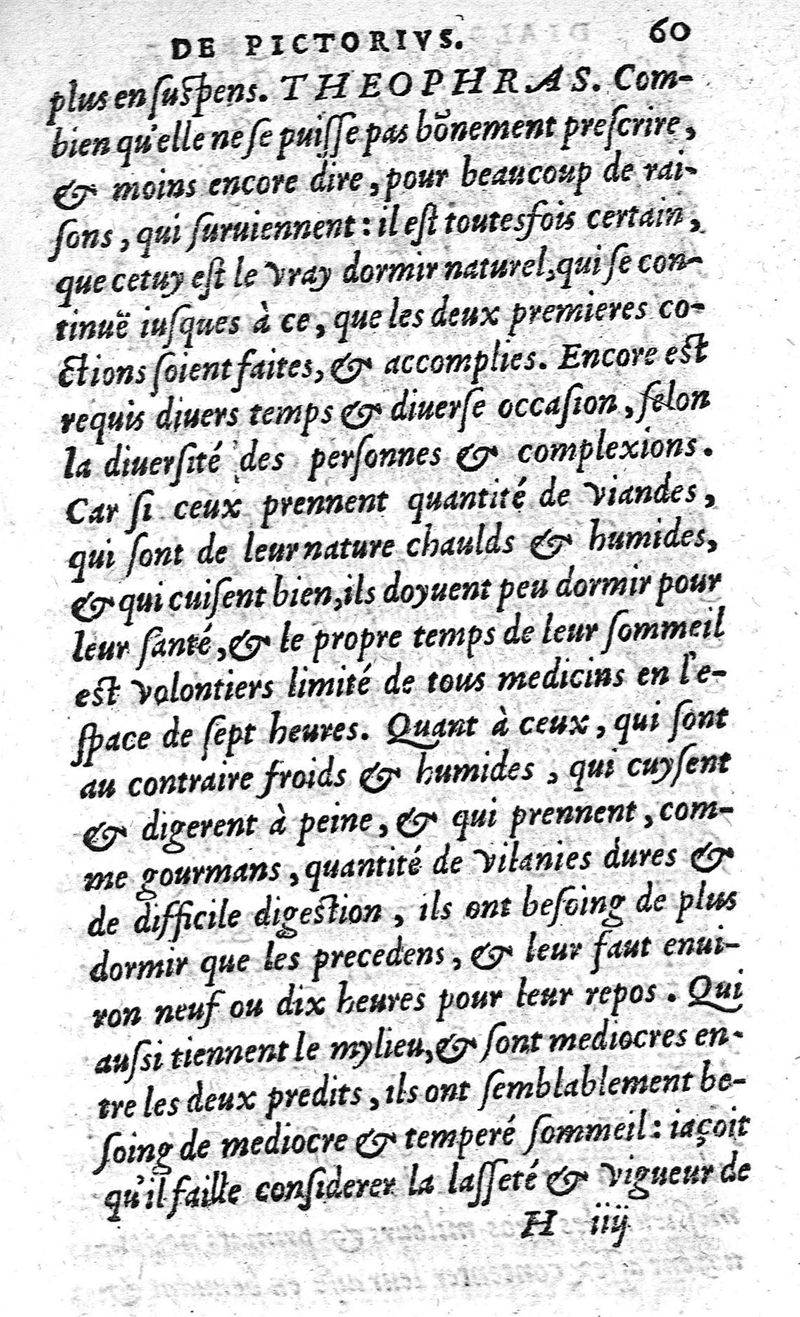 DE PICTORIVS. 60
plus en suspens. THEOPHRAS. Com-
bien qu'elle ne se puisse pas bõnement prescrire,
& moins encore dire, pour beaucoup de rai-
sons, qui suruiennent: il est toutesfois certain,
que cetuy est le vray dormir naturel, qui se con-
tinuë iusques à ce, que les deux premieres co-
ctions soient faites, & accomplies. Encore est
requis diuers temps & diuerse occasion, selon
la diuersité des personnes & complexions.
Car si ceux prennent quantité de viandes,
qui sont de leur nature chaulds & humides,
& qui cuisent bien, ils doyuent peu dormir pour
leur santé, & le propre temps de leur sommeil
est volontiers limité de tous medicins en l'e-
space de sept heures. Quant à ceux, qui sont
au contraire froids & humides, qui cuysent
& digerent à peine, & qui prennent, com-
me gourmans, quantité de vilanies dures &
de difficile digestion, ils ont besoing de plus
dormir que les precedens, & leur faut enui-
ron neuf ou dix heures pour leur repos. Qui
aussi tiennent le mylieu, & sont mediocres en-
tre les deux predits, ils ont semblablement be-
soing de mediocre & temperé sommeil: iaçoit
qu'il faille considerer la lasseté & vigueur de
H iiij